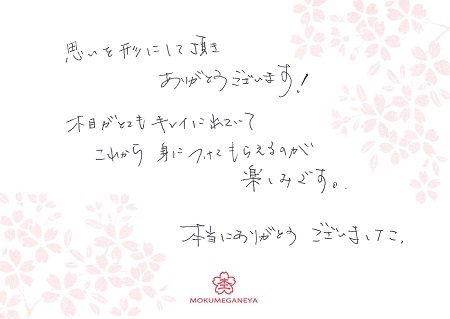 思いを形にして頂き
ありがとうございます!
木目がとてもキレイに出ていて
これから身につけてもらえるのが
楽しみです。
本当にありがとうございました。
MOKUMEGANEYA